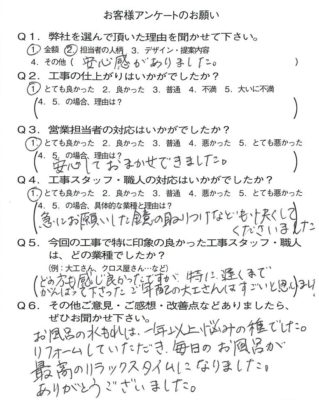 お客様アンケートのお願い
Q1. 弊社を選んで頂いた理由を聞かせて下さい。
① 金額 ② 担当者の人柄 3. デザイン・提案内容
4. その他( 安心感がありました。 )
Q2. 工事の仕上がりはいかがでしたか?
① とても良かった 2. 良かった 3. 普通 4. 不満 5. 大いに不満
(4. 5. の場合、理由は? )
Q3. 営業担当者の対応はいかがでしたか?
① とても良かった 2. 良かった 3. 普通 4. 悪かった 5. とても悪かった
(4. 5. の場合、理由は?
安心しておまかせできました。 )
Q4. 工事スタッフ・職人の対応はいかがでしたか?
① とても良かった 2. 良かった 3. 普通 4. 悪かった 5. とても悪かった
(4. 5. の場合、具体的な業種と理由は?
急にお願いした鏡の取りつけなども快くして
くださいました )
Q5. 今回の工事で特に印象の良かった工事スタッフ・職人
は、どの業種でしたか?
(例:大工さん、クロス屋さん…など)
(どの方も感じ良かったですが、特に、遅くまで
がんばって下さったご年配の大工さんはすごいと思います!)
Q6. その他ご意見・ご感想・改善点などありましたら、
ぜひお聞かせ下さい。
お風呂の水もれは、一年以上悩みの種でした。
リフォームしていただき、毎日のお風呂が
最高のリラックスタイムになりました。
ありがとうございました。